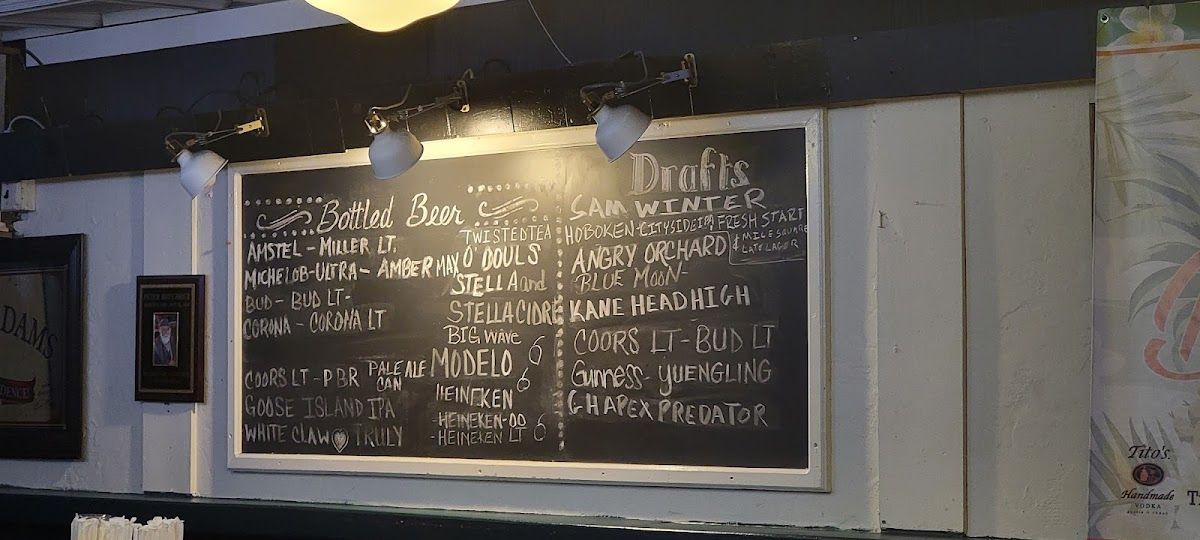 Bottled Beer
AMSTEL - MILLER LT.
MICHELOB-ULTRA - AMBER MAX
BUD - BUD LT-
CORONA - CORONA LT
COORS LT - PBR PALE ALE CAN
GOOSE ISLAND IPA
WHITE CLAW TRULY
TWISTED TEA
O'DOULS
STELLA and
STELLA CIDRE
BIG WAVE
MODELO 6
HEINEKEN 6
-HEINEKEN-OO
-HEINEKEN LT 6
Drafts
SAM WINTER
HOBOKEN-CITYSIDE IPA, FRESH START
& MILE SQUARE
LATE LAGER
ANGRY ORCHARD
BLUE MOON-
KANE HEAD HIGH
COORS LT - BUD LT
Guinness - YUENGLING
GH APEX PREDATOR
DAMS
DENCE
Tito's
Handmade
VODKA